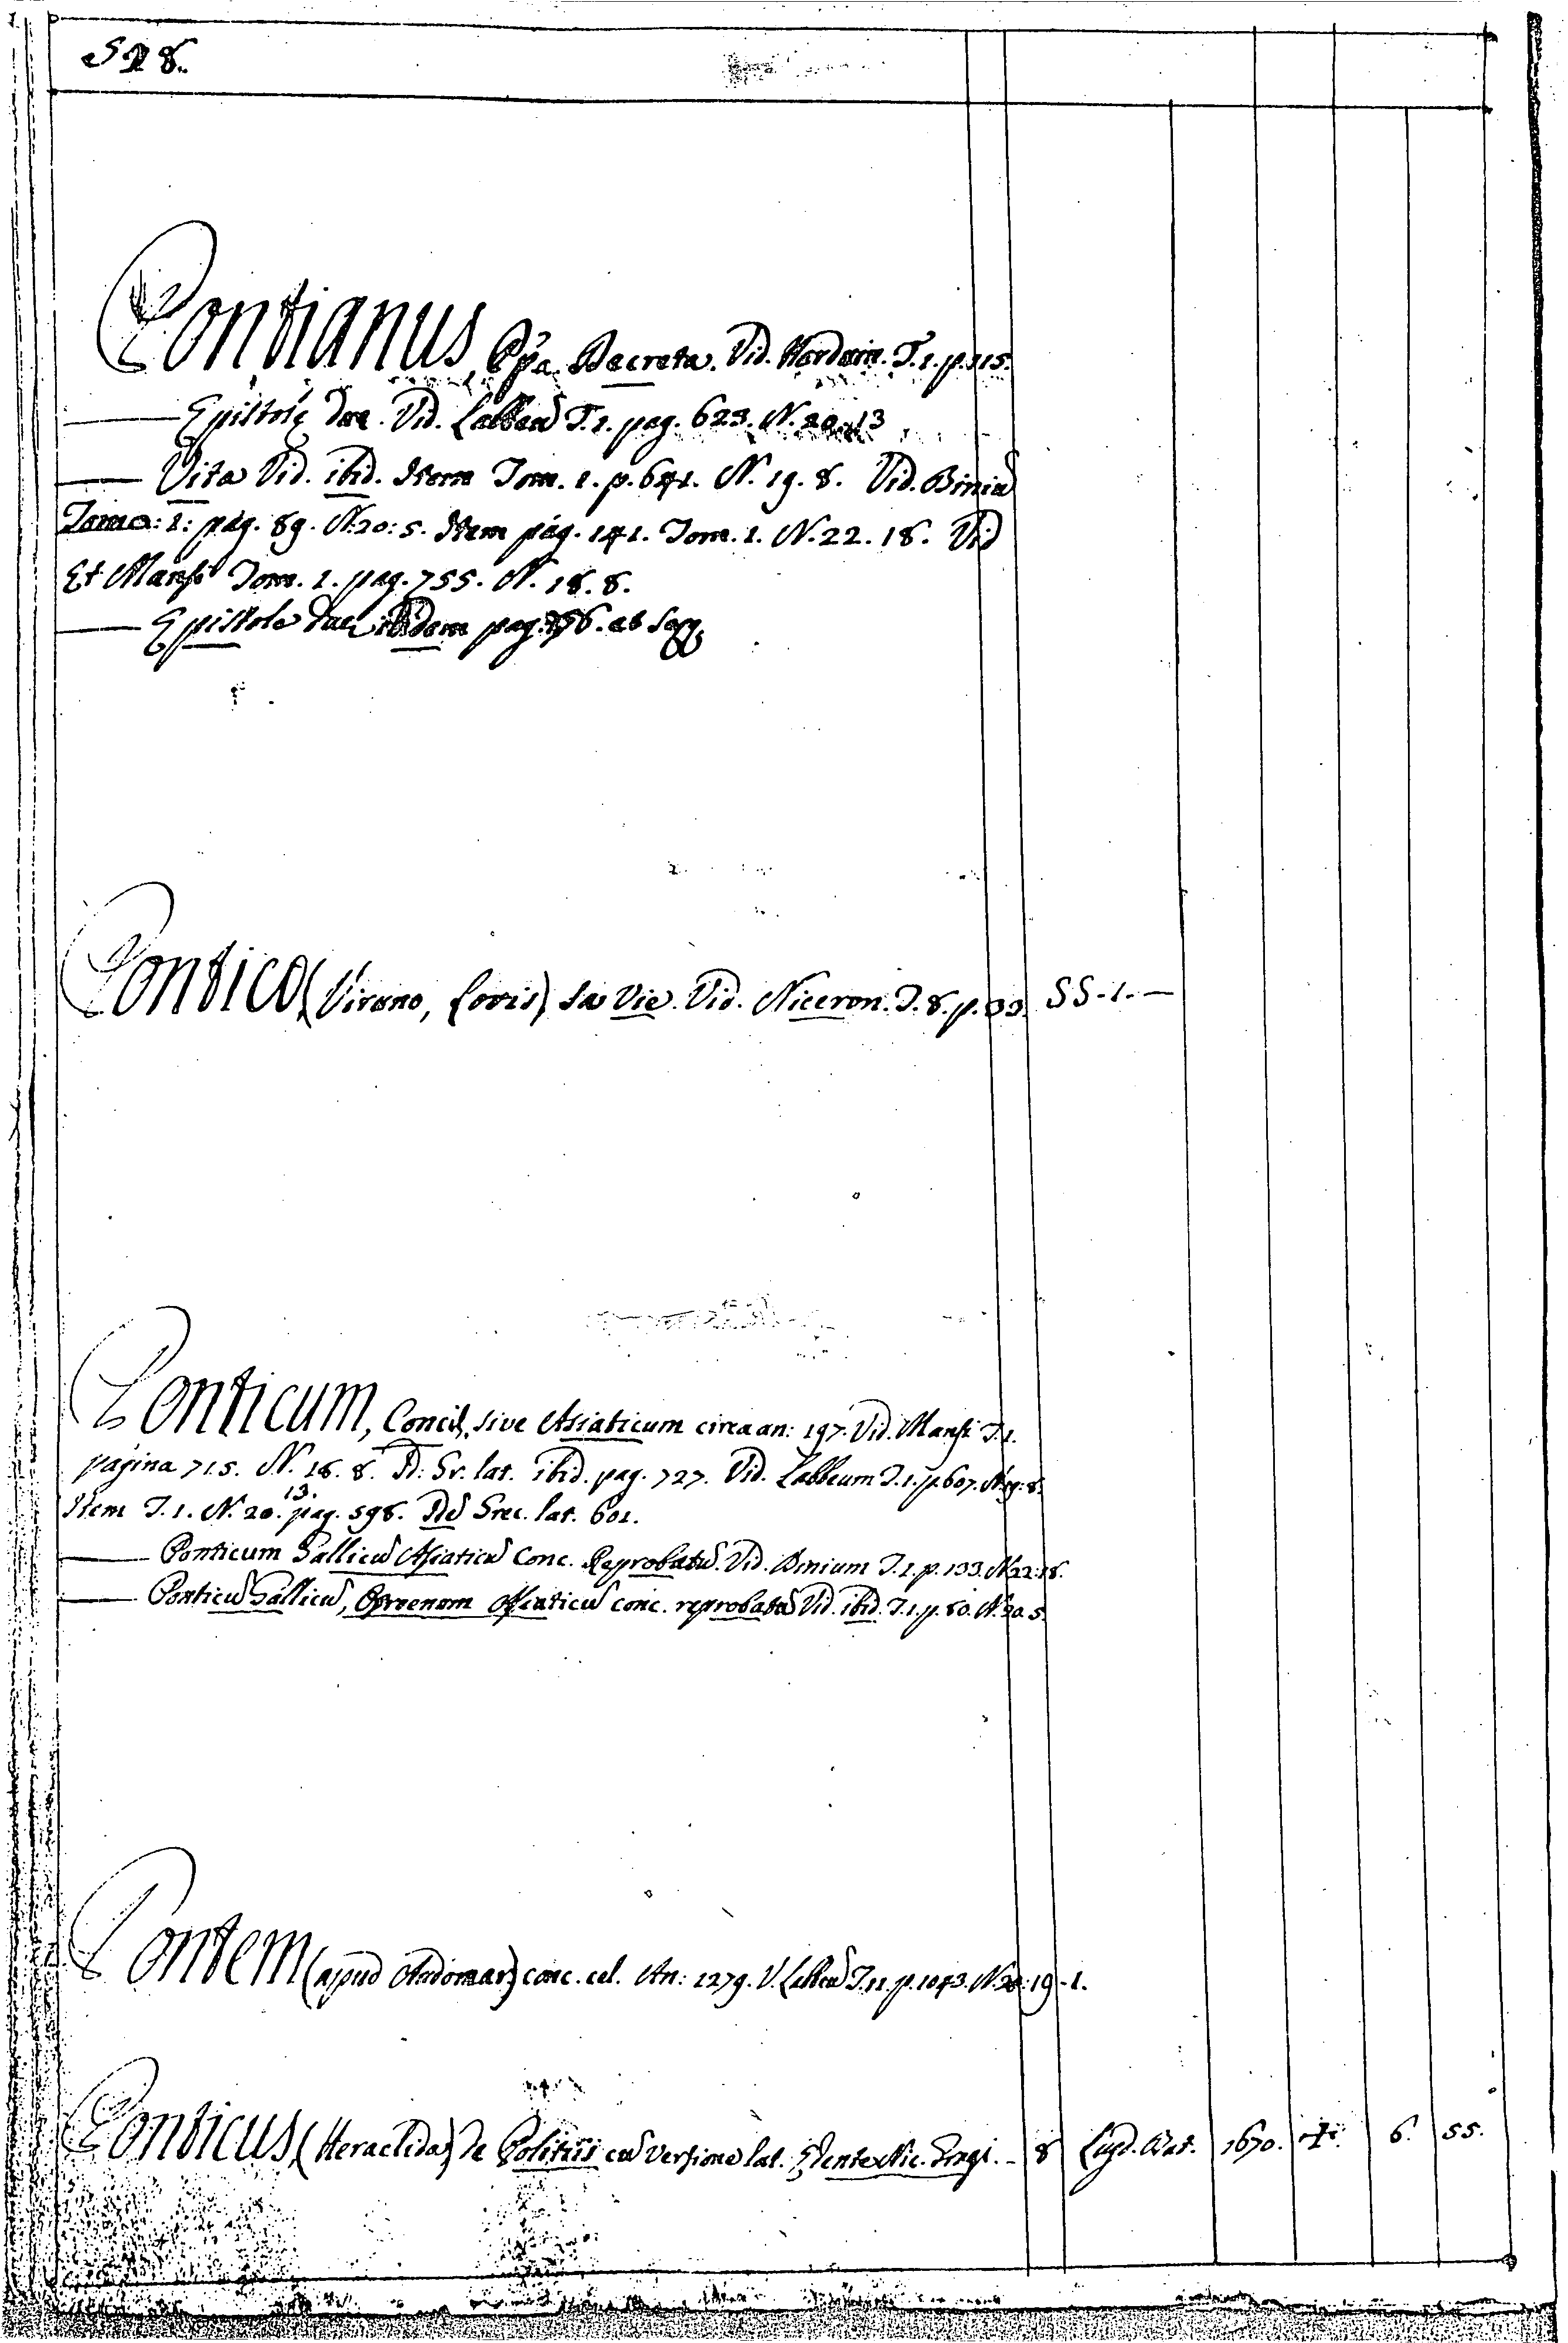 528.
Pontianus, Ppa. Decreta. Vid. Harduin. T. 1. p. 115.
Epistolę duę. Vid. Labbeū T. 1. pag. 623. N. 20. 13
Vita Vid. ibid. Item Tom. 1. p. 641. N. 19. 8. Vid. Biniū
Tomo: 1: pág. 89. N: 20: 5. Item pág. 141. Tom. 1. N. 22. 18. Vid
Et Mansi Tom. 1. pag. 755. N. 18. 8.
Epistole duę ibidem pag. 756. et seqq
Pontico (Viruno, Lovis) sa Vie. Vid. Niceron. T. 8. p. 33. SS-1.-
Ponticum, Concil, sive Asiaticum circa an: 197. Vid. Mansi T. 1.
página 715. N. 18. 8. Id: Gr. lat. ibid. pag. 727. Vid. Labbeum T. 1. p. 607. N. 19: 8.
Item T. 1. N. 20. 13. pag. 598. Id Grec. lat. 601.
Ponticum Gallicū Asiaticū Conc. Reprobatū. Vid. Binium T. 1. p. 133. N. 22: 18.
Ponticū Gallicū, Osroenum Asiaticū conc. reprobatū Vid. ibid. T. 1. p. 80. N. 20. 5.
Pontem (apud Audomar) conc. cel. An: 1279. V. Labbeū T. 11. p. 1043. N. 20: 19-1.
Ponticus, (Heraclida) de Politiis cū versione lat. 8 Lugd. Bat. 1670. 6. 55.